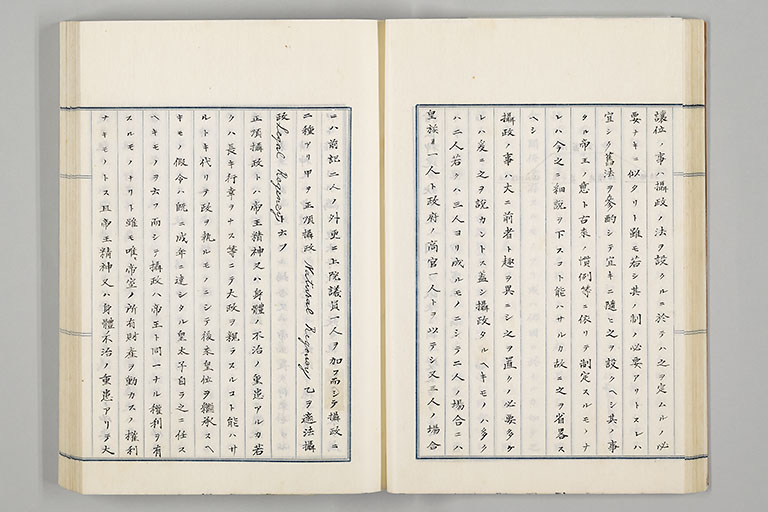 讓位ノ事ハ攝政ノ法ヲ設クルニ於テハ之ヲ定ムルノ必
要ナキニ似タリト雖モ若シ其ノ制ノ必要アリトスレハ
宜シク舊法ヲ參酌シテ宜キニ隨ヒ之ヲ設クヘシ其ノ事
タル帝王ノ意ト古來ノ慣例等ニ依リテ制定スルモノナ
レハ今之ニ細說ヲ下スコト能ハサルカ故ニ之ヲ省畧ス
ヘシ
攝政ノ事ハ大ニ前者ト趣ヲ異ニシ之ヲ置クノ必要多ケ
レハ爰ニ之ヲ說カントス蓋シ攝政タルヘキモノハ多ク
ハ二人若クハ三人ヨリ成ルモノニシテ二人ノ場合ニハ
皇族ノ一人ト政府ノ高官一人トヲ以テシ又三人ノ場合
ニハ前記二人ノ外更ニ上院議員一人ヲ加フ而シテ攝政ニ
二種アリ甲ヲ正項攝政 Natural Regency 乙ヲ適法攝
政 Legal Regency ト云フ
正項攝政トハ帝王精神又ハ身體ノ不治ノ重患アルカ若
クハ長キ行幸ヲナス等ニテ大政ヲ親ラスルコト能ハサ
ルトキ代リテ政ヲ執ルモノニシテ後來皇位ヲ繼承スヘ
キモノ假令ハ既ニ成年ニ達シタル皇太子自ラ之ニ任ス
ヘキモノヲ云フ而シテ攝政ハ帝王ト同一ナル權利ヲ有
スルモノナリト雖モ唯帝室ノ所有財産ヲ動カスノ權利
ナキモノトス且帝王精神又ハ身體不治ノ重患アリテ大